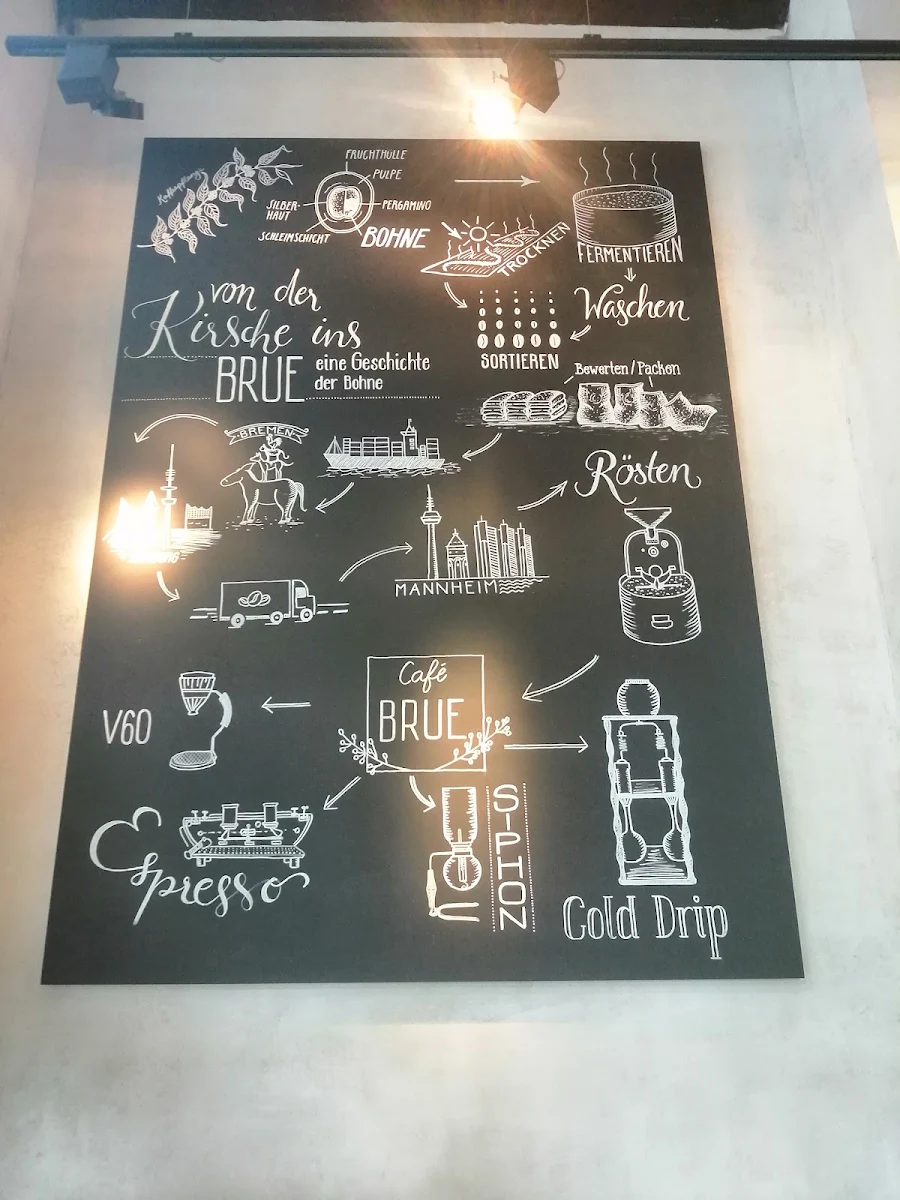 Kaffeepflanze
FRUCHTHÜLLE
PULPE
SILBER-
HAUT
PERGAMINO
SCHLEIMSCHICHT
BOHNE
FERMENTIEREN
TROCKNEN
Waschen
SORTIEREN
von der
Kirsche ins
BRUE
eine Geschichte
der Bohne
Bewerten/Packen
BREMEN
Rösten
MANNHEIM
Café
BRUE
V60
Espresso
SIPHON
Cold Drip